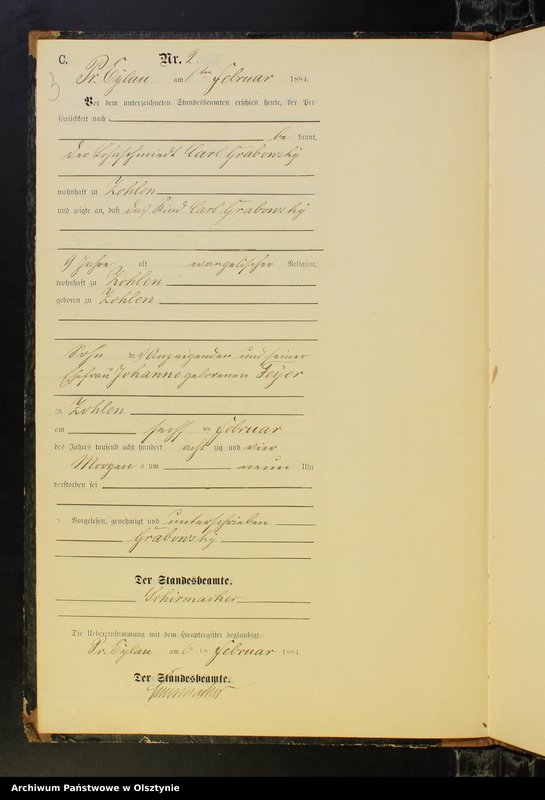 C.
Nr. 2.
3
Pr. Eylau am 6ten Februar 1884.
Vor dem unterzeichneten Standesbeamten erschien heute, der Per-
sönlichkeit nach
be kannt,
der Losschmiedt Carl Grabowsky
wohnhaft zu Zohlen
und zeigte an, daß das Kind Carl Grabowsky
9 Jahre alt evangelischer Religion,
wohnhaft zu Zohlen
geboren zu Zohlen
Sohn des Anzeigenden und seiner
Ehefrau Johanne geborenen
zu Zohlen
am sechs ten Februar
des Jahres tausend acht hundert acht zig und vier
Morgens um neun Uhr
verstorben sei
Vorgelesen, genehmigt und unterschrieben
Grabowsky
Der Standesbeamte.
Schirmacher
Die Uebereinstimmung mit dem Hauptregister beglaubigt.
Pr. Eylau am 6 ten Februar 1884
Der Standesbeamte.
Schirmacher
Archiwum Państwowe w Olsztynie